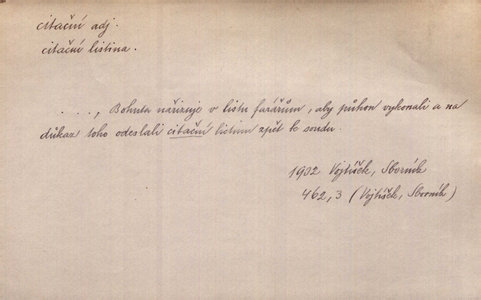 citační adj.
citační listina.
. . . ., Bohuta nařizuje v listu farářům, aby půhon vykonali a na
důkaz toho odeslali citační listinu zpět k soudu.
1932 Vojtíšek, Sborník
462,3 (Vojtíšek, Sborník)